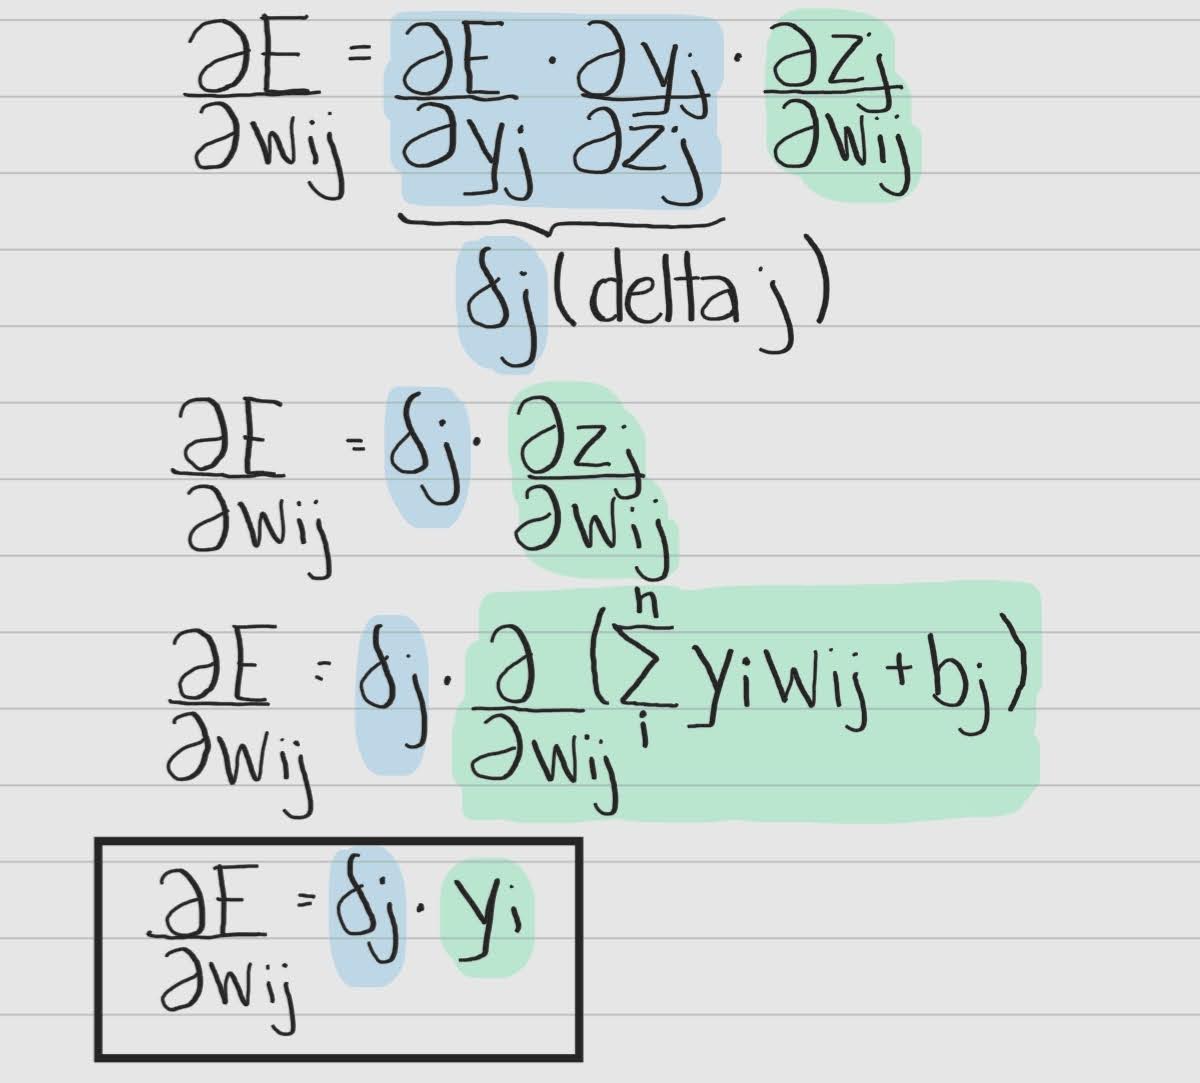 ∂E/∂wij = ∂E/∂yj · ∂yj/∂zj · ∂zj/∂wij
δj (delta j)
∂E/∂wij = δj · ∂zj/∂wij
∂E/∂wij = δj · ∂/∂wij (∑ᵢⁿ yi wij + bj)
∂E/∂wij = δj · yi